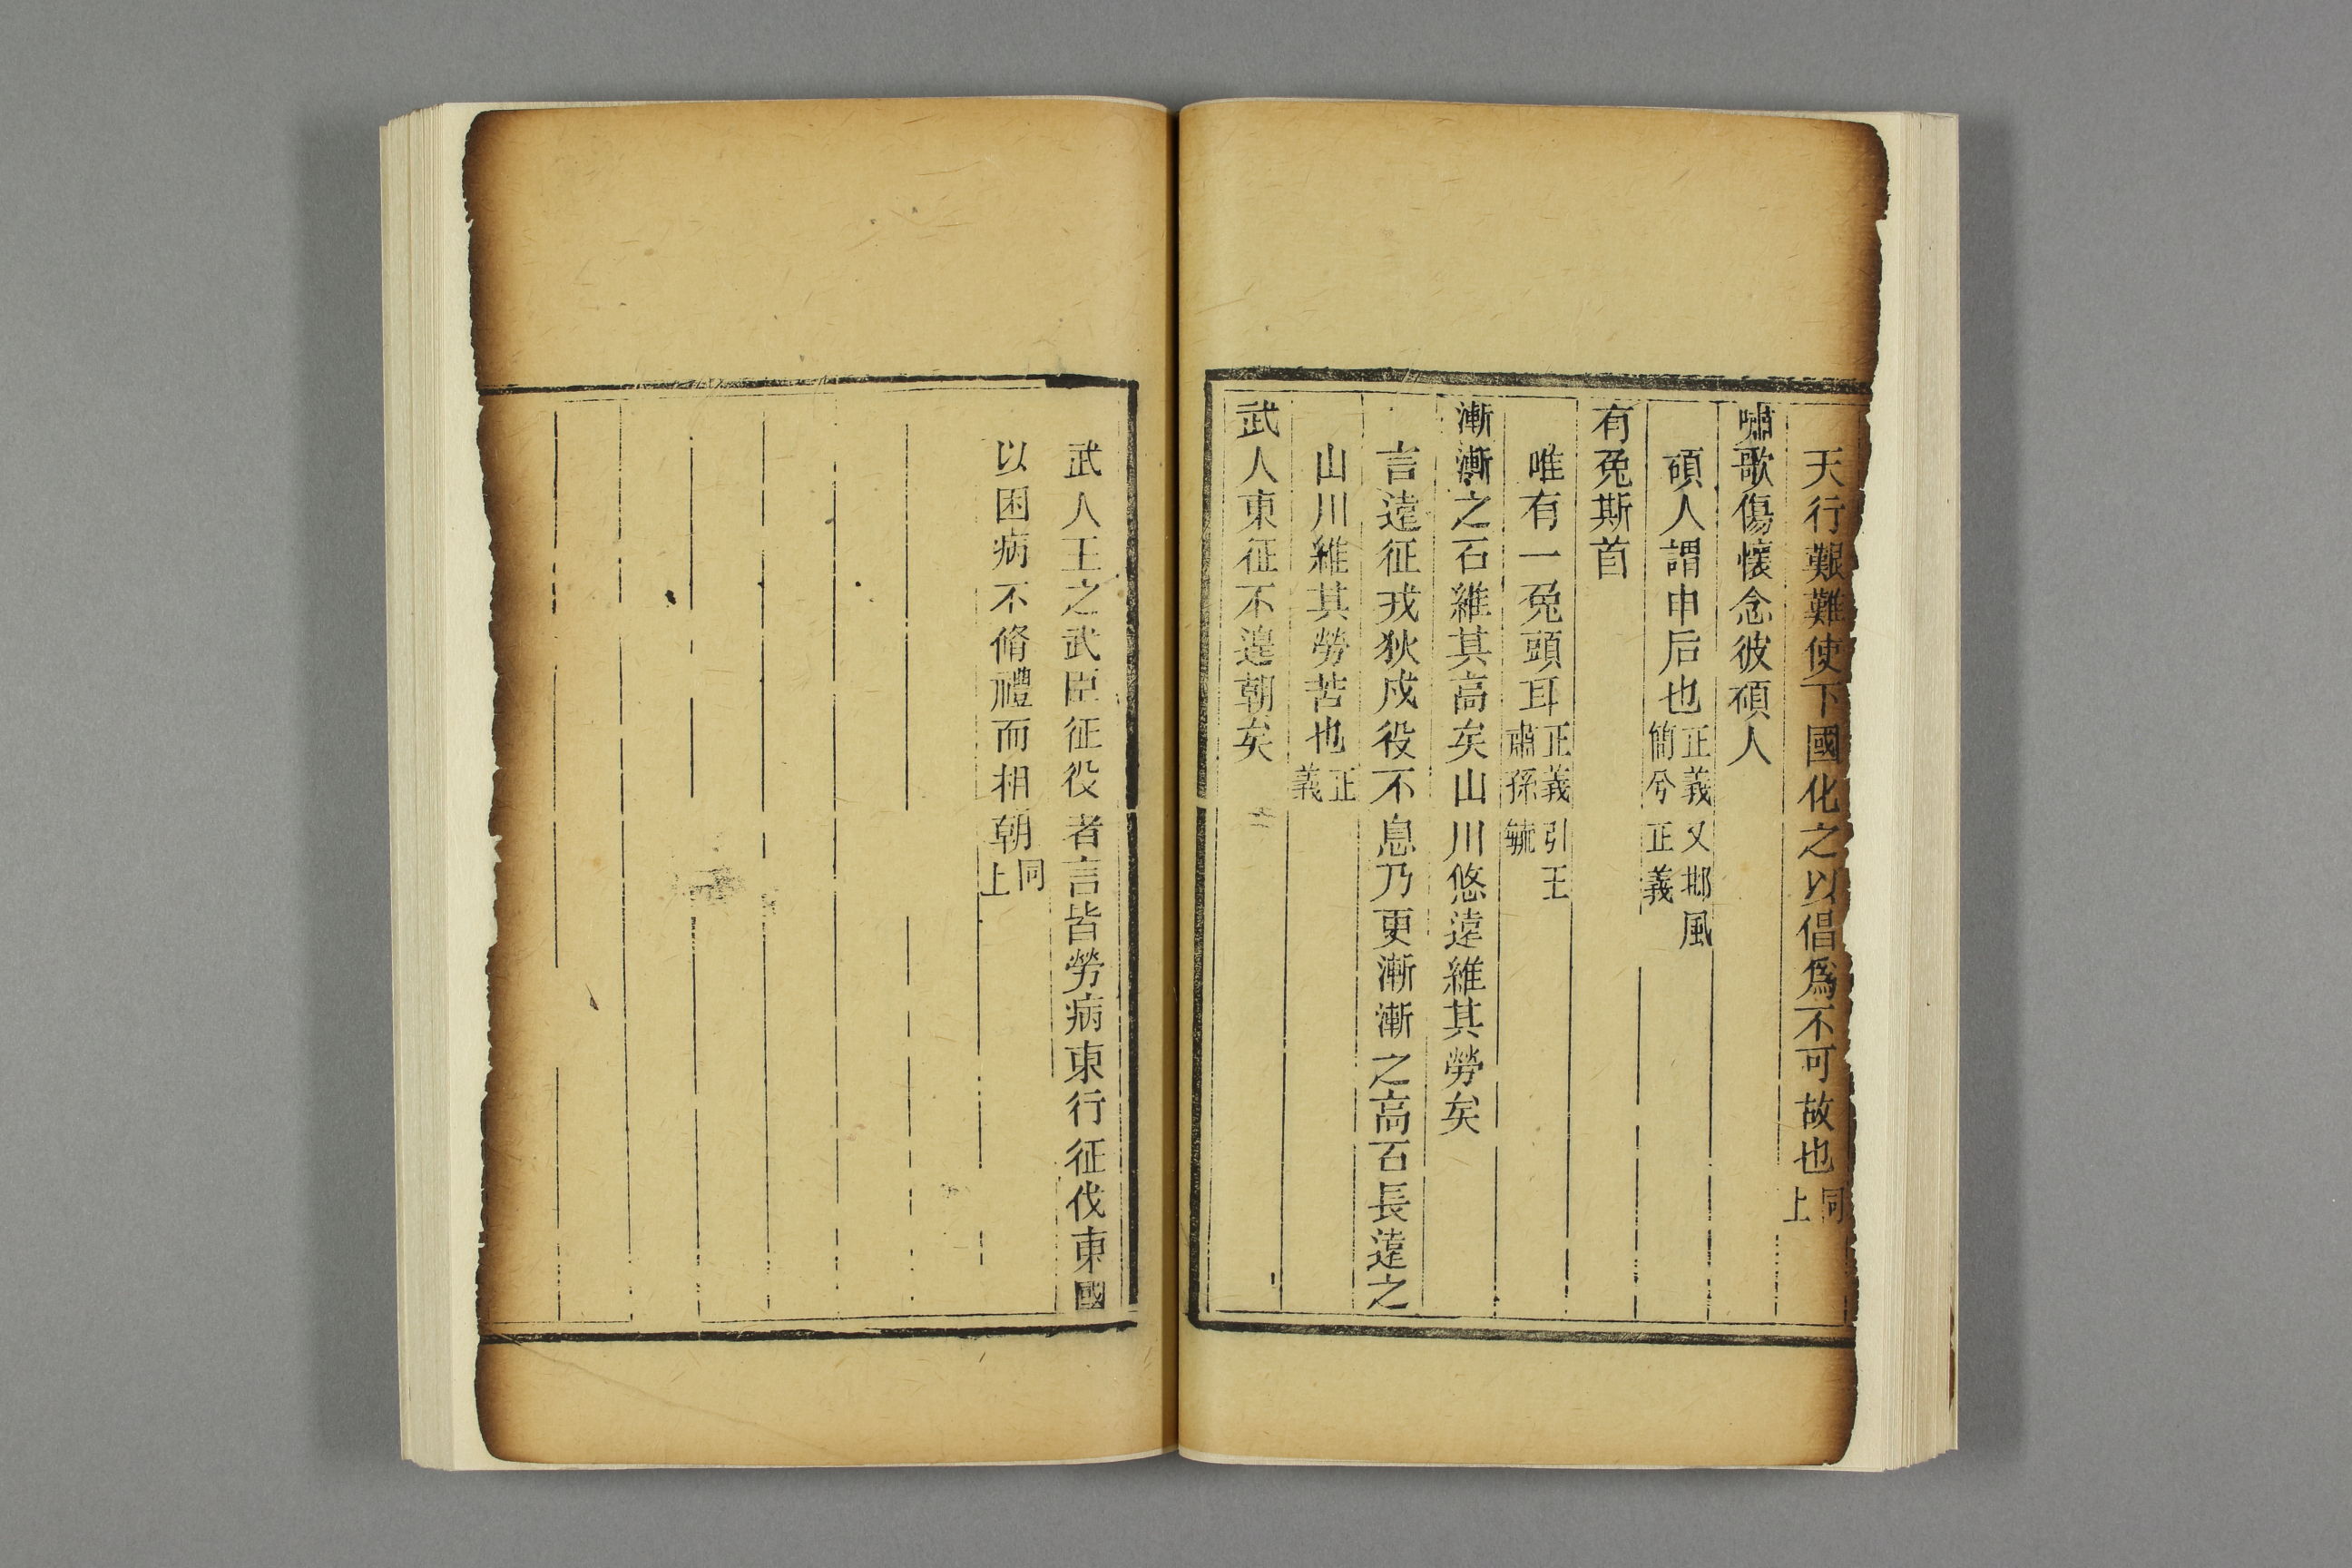 天行艱難使下國化之以倡爲不可故也同上
嘯歌傷懷念彼碩人
碩人謂申后也正義又邶風簡兮正義
有兔斯首
唯有一兔頭耳正義引王肅孫毓
漸漸之石維其高矣山川悠遠維其勞矣
言遠征戎狄戍役不息乃更漸漸之高石長遠之
山川維其勞苦也正義
武人東征不遑朝矣
武人王之武臣征役者言皆勞病東行征伐東國
以困病不脩禮而相朝同上